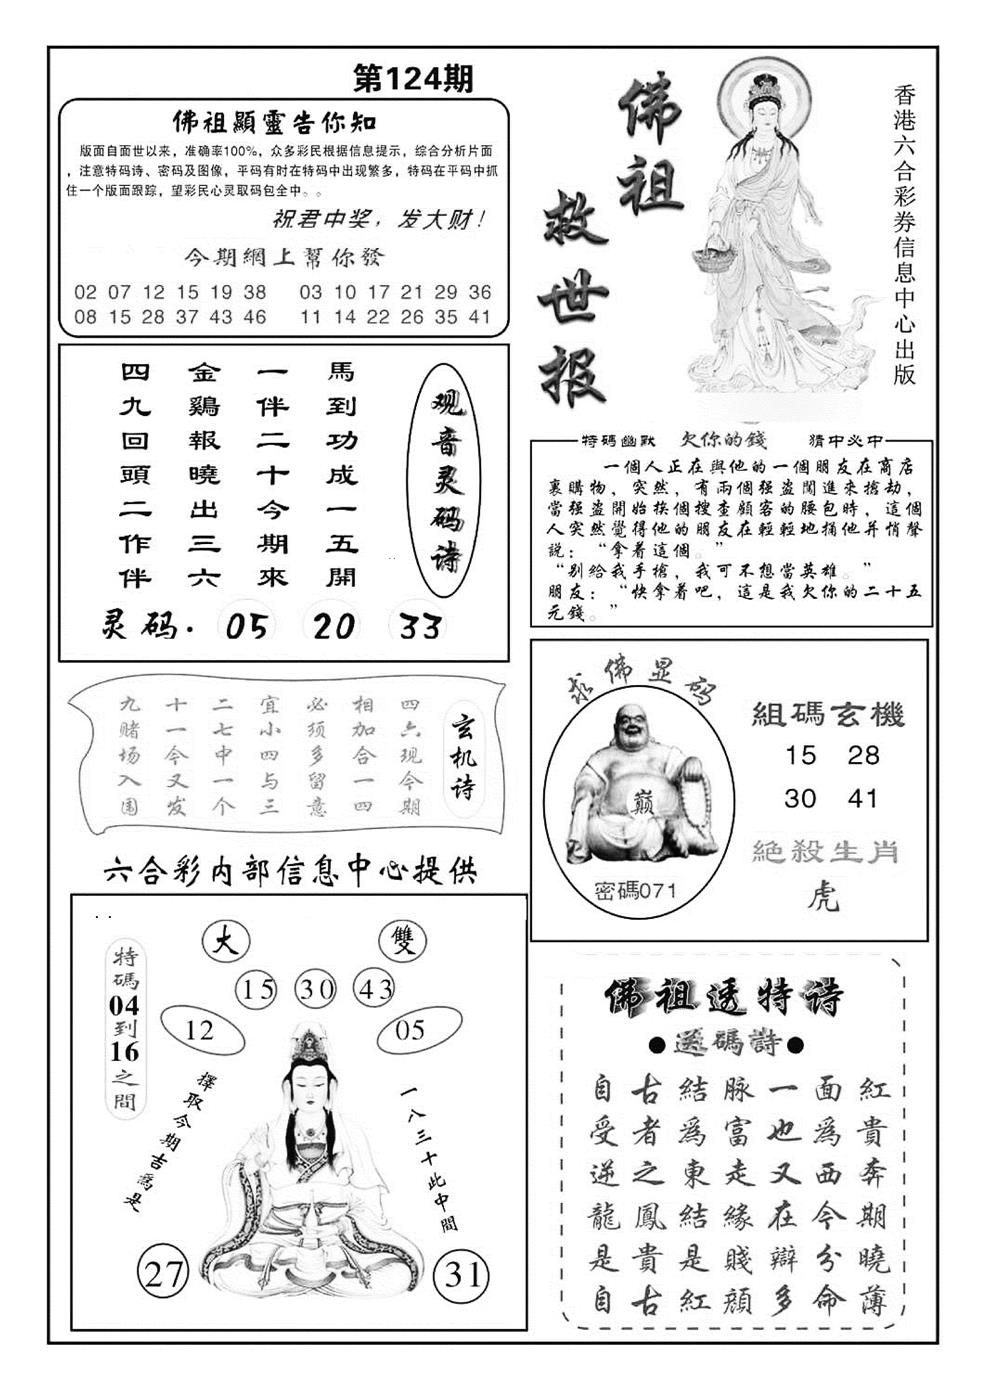 第124期
佛祖顯靈告你知
版面自面世以来，准确率100%，众多彩民根据信息提示，综合分析片面
，注意特码诗、密码及图像，平码有时在特码中出现繁多，特码在平码中抓
住一个版面跟踪，望彩民心灵取码包全中。。
祝君中奖，发大财！
今期網上幫你發
02 07 12 15 19 38 03 10 17 21 29 36
08 15 28 37 43 46 11 14 22 26 35 41
佛祖
救世报
香港六合彩券信息中心出版
观音灵码诗
馬到功成一五開
一伴二十今期來
金鷄報曉出三六
四九回頭二作伴
灵码. 05 20 33
特碼幽默 欠你的錢 猜中必中
一個人正在與他的一個朋友在商店
裏購物，突然，有兩個强盗闖進來搶劫，
當强盗開始挨個搜查顧客的腰包時，這個
人突然覺得他的朋友在輕輕地捅他并悄聲
説：“拿着這個。”
“别給我手槍，我可不想當英雄。”
朋友：“快拿着吧，這是我欠你的二十五
元錢。”
玄机诗
四六现今期
相加合一四
必须多留意
宜小四与三
二七中一个
十一今又发
九赌场入围
求佛显码
巅
密碼071
組碼玄機
15 28
30 41
絕殺生肖
虎
六合彩内部信息中心提供
大 雙
15 30 43
12 05
特碼04到16之間
擇取今期吉爲是
一八三十此中間
27 31
佛祖透特诗
●送碼詩●
自古結脉一面紅
受者爲富也爲貴
逆之東走又西奔
龍鳳結緣在今期
是貴是賤辯分曉
自古紅顔多命薄